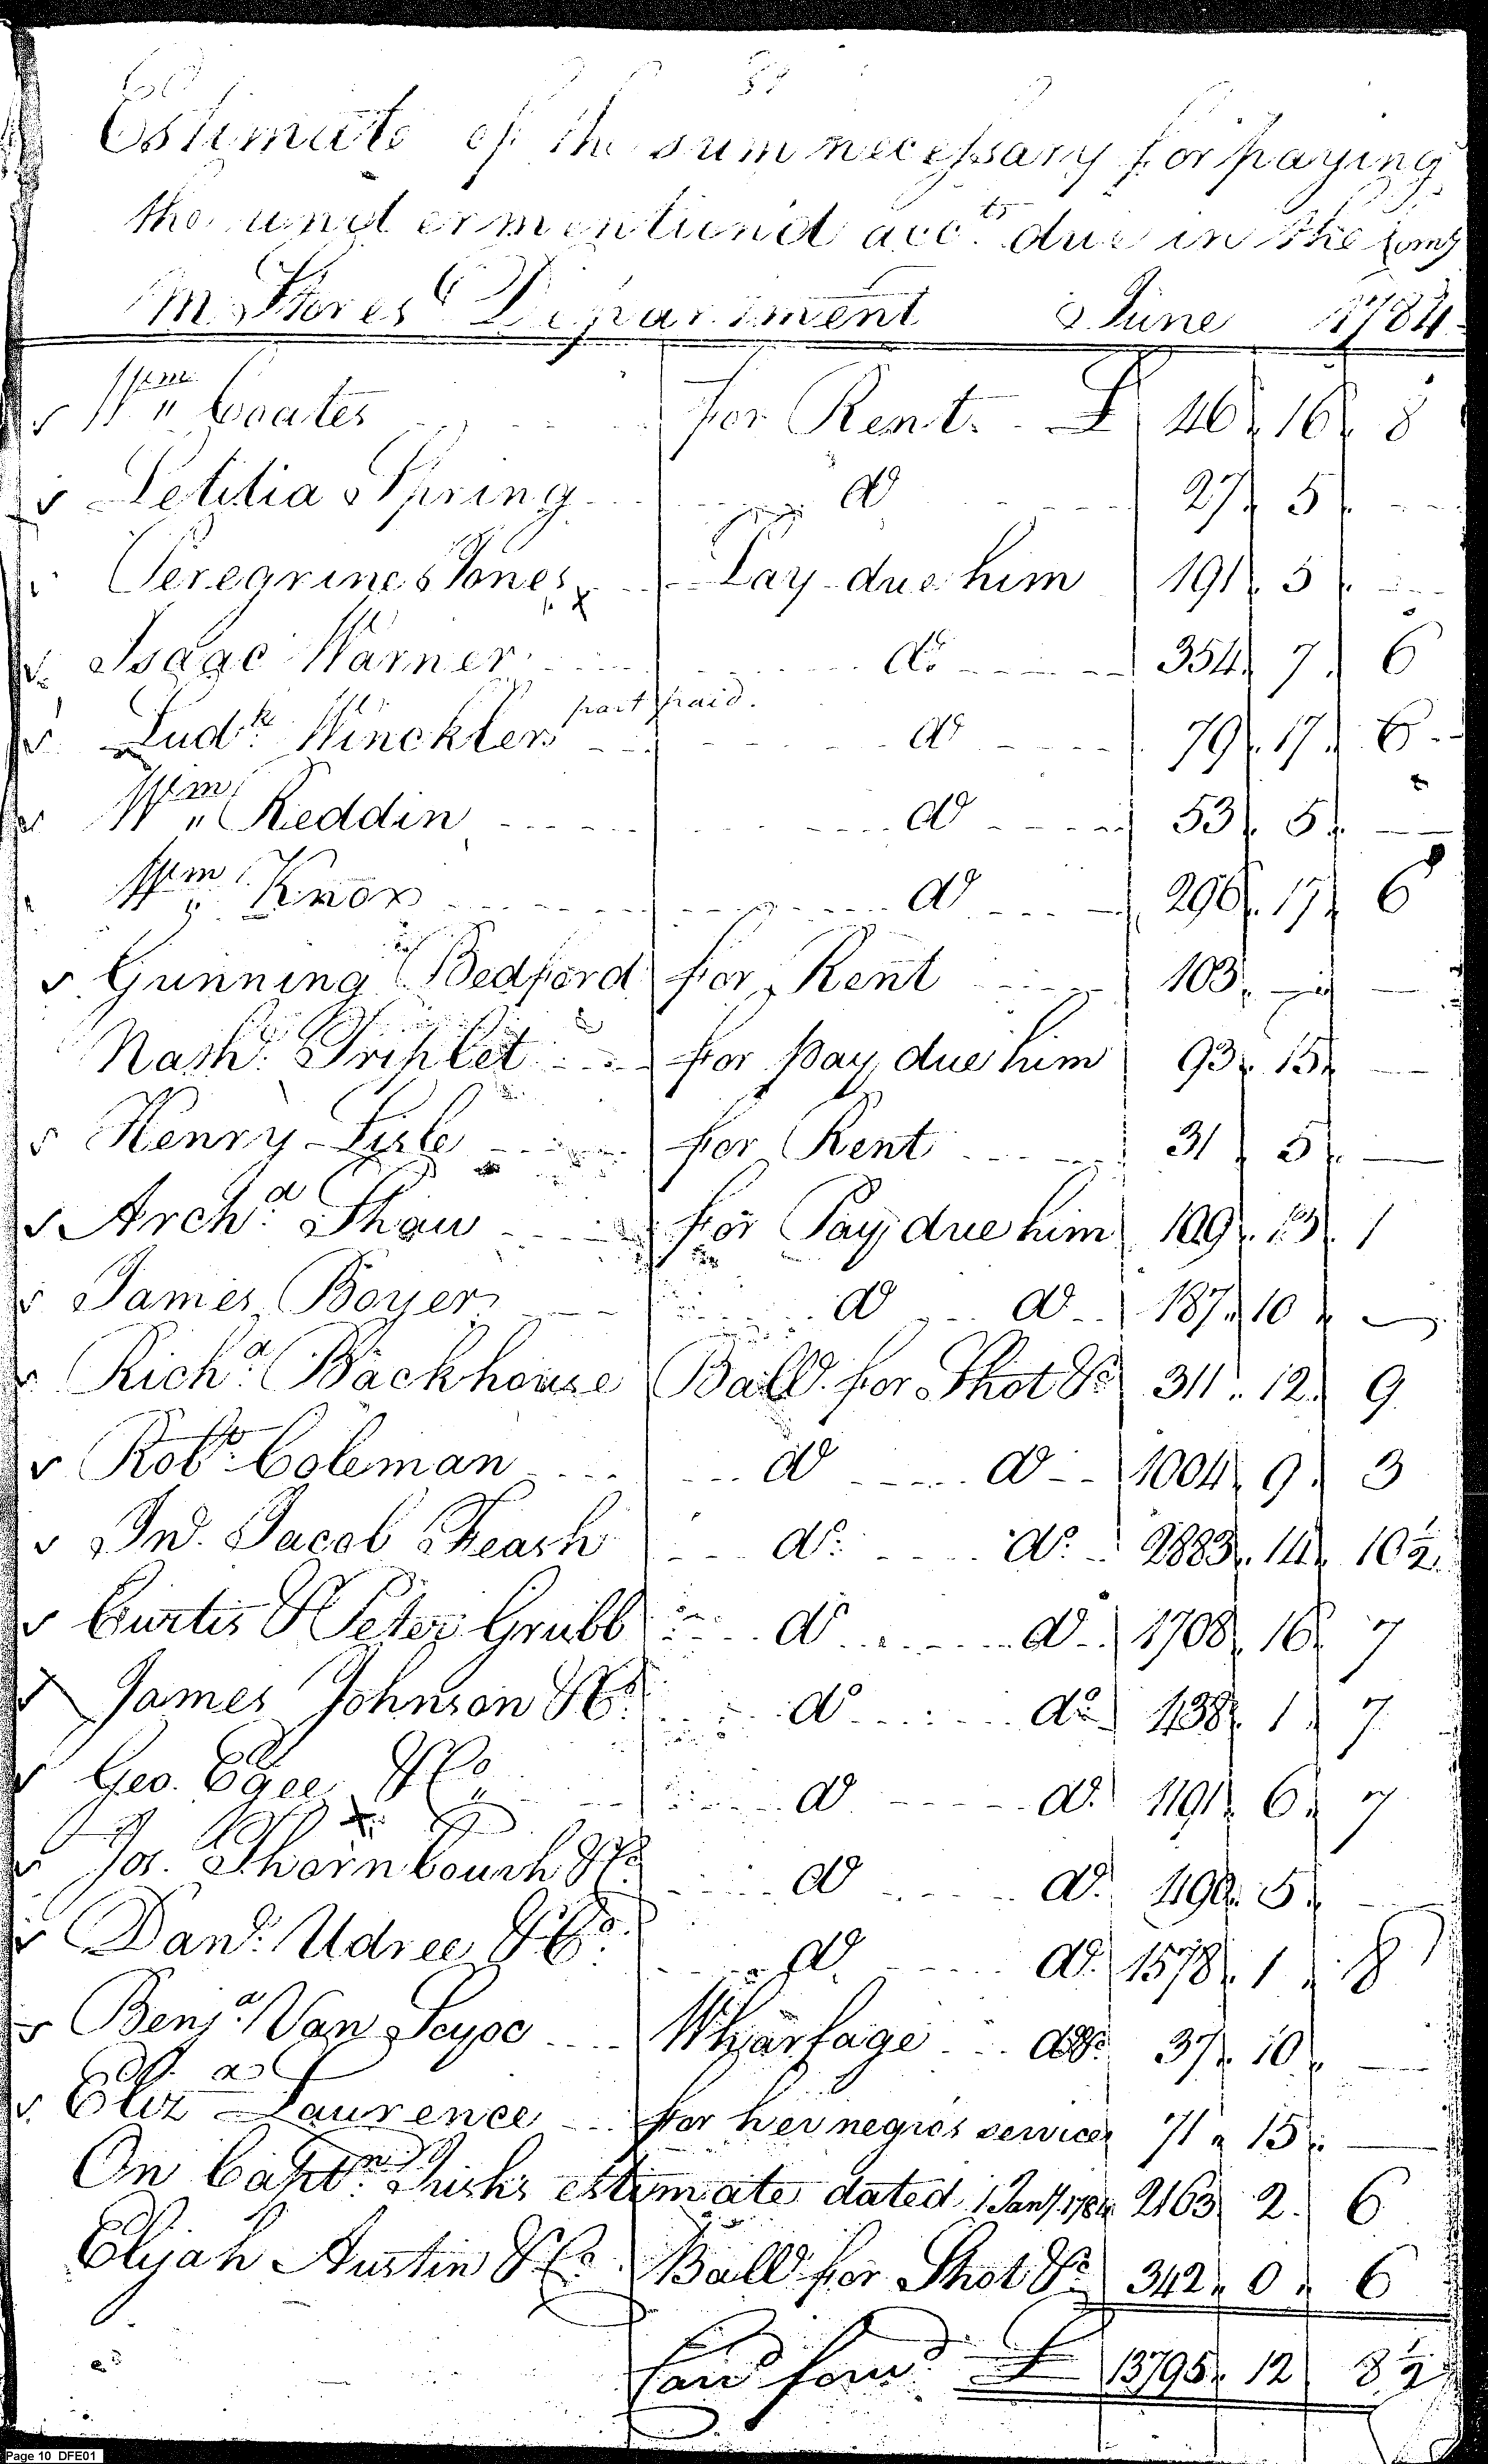 Estimate of the sum necessary for paying
the undermentiond acc.ts due in the Comy
M. Stores Department June 1784
Wm. Coates for Rent £ 46 16 8
Letitia Spring do 27 5
Peregrine Jones Pay due him 191 5
Isaac Warner do 354 7 6
part paid.
Ludk. Winckler do 79 17 6
Wm. Reddin do 53 5
Wm. Knox do 296 17 6
Gunning Bedford for Rent 103
Nash. Triplet for pay due him 93 15
Henry Lisle for Rent 31 5
Archd. Shaw for Pay due him 109 13 1
James Boyer do do 187 10
Richd. Backhouse Balle. for Shot &c 311 12 9
Robt. Coleman do do 1004 9 3
Jno. Jacob Feash do do 2883 14 10½
Curtis & Peter Grubb do do 1708 16 7
James Johnson & Co. do do 438 1 7
Geo. Egee & Co. do do 1191 6 7
Jos. Thornbourh & Co. do do 490 5
Danl. Udree & Co. do do 1578 1 8
Benja. Van Scyoc Wharfage &c 37 10
Eliz Laurence for her negros services 71 15
On Captn. estimate dated 1 Jany 1784 2163 2 6
Elijah Austin & Co. Balle for Shot &c 342 0 6
Card forwd. £ 13795 12 8½
Page 10 DFE01